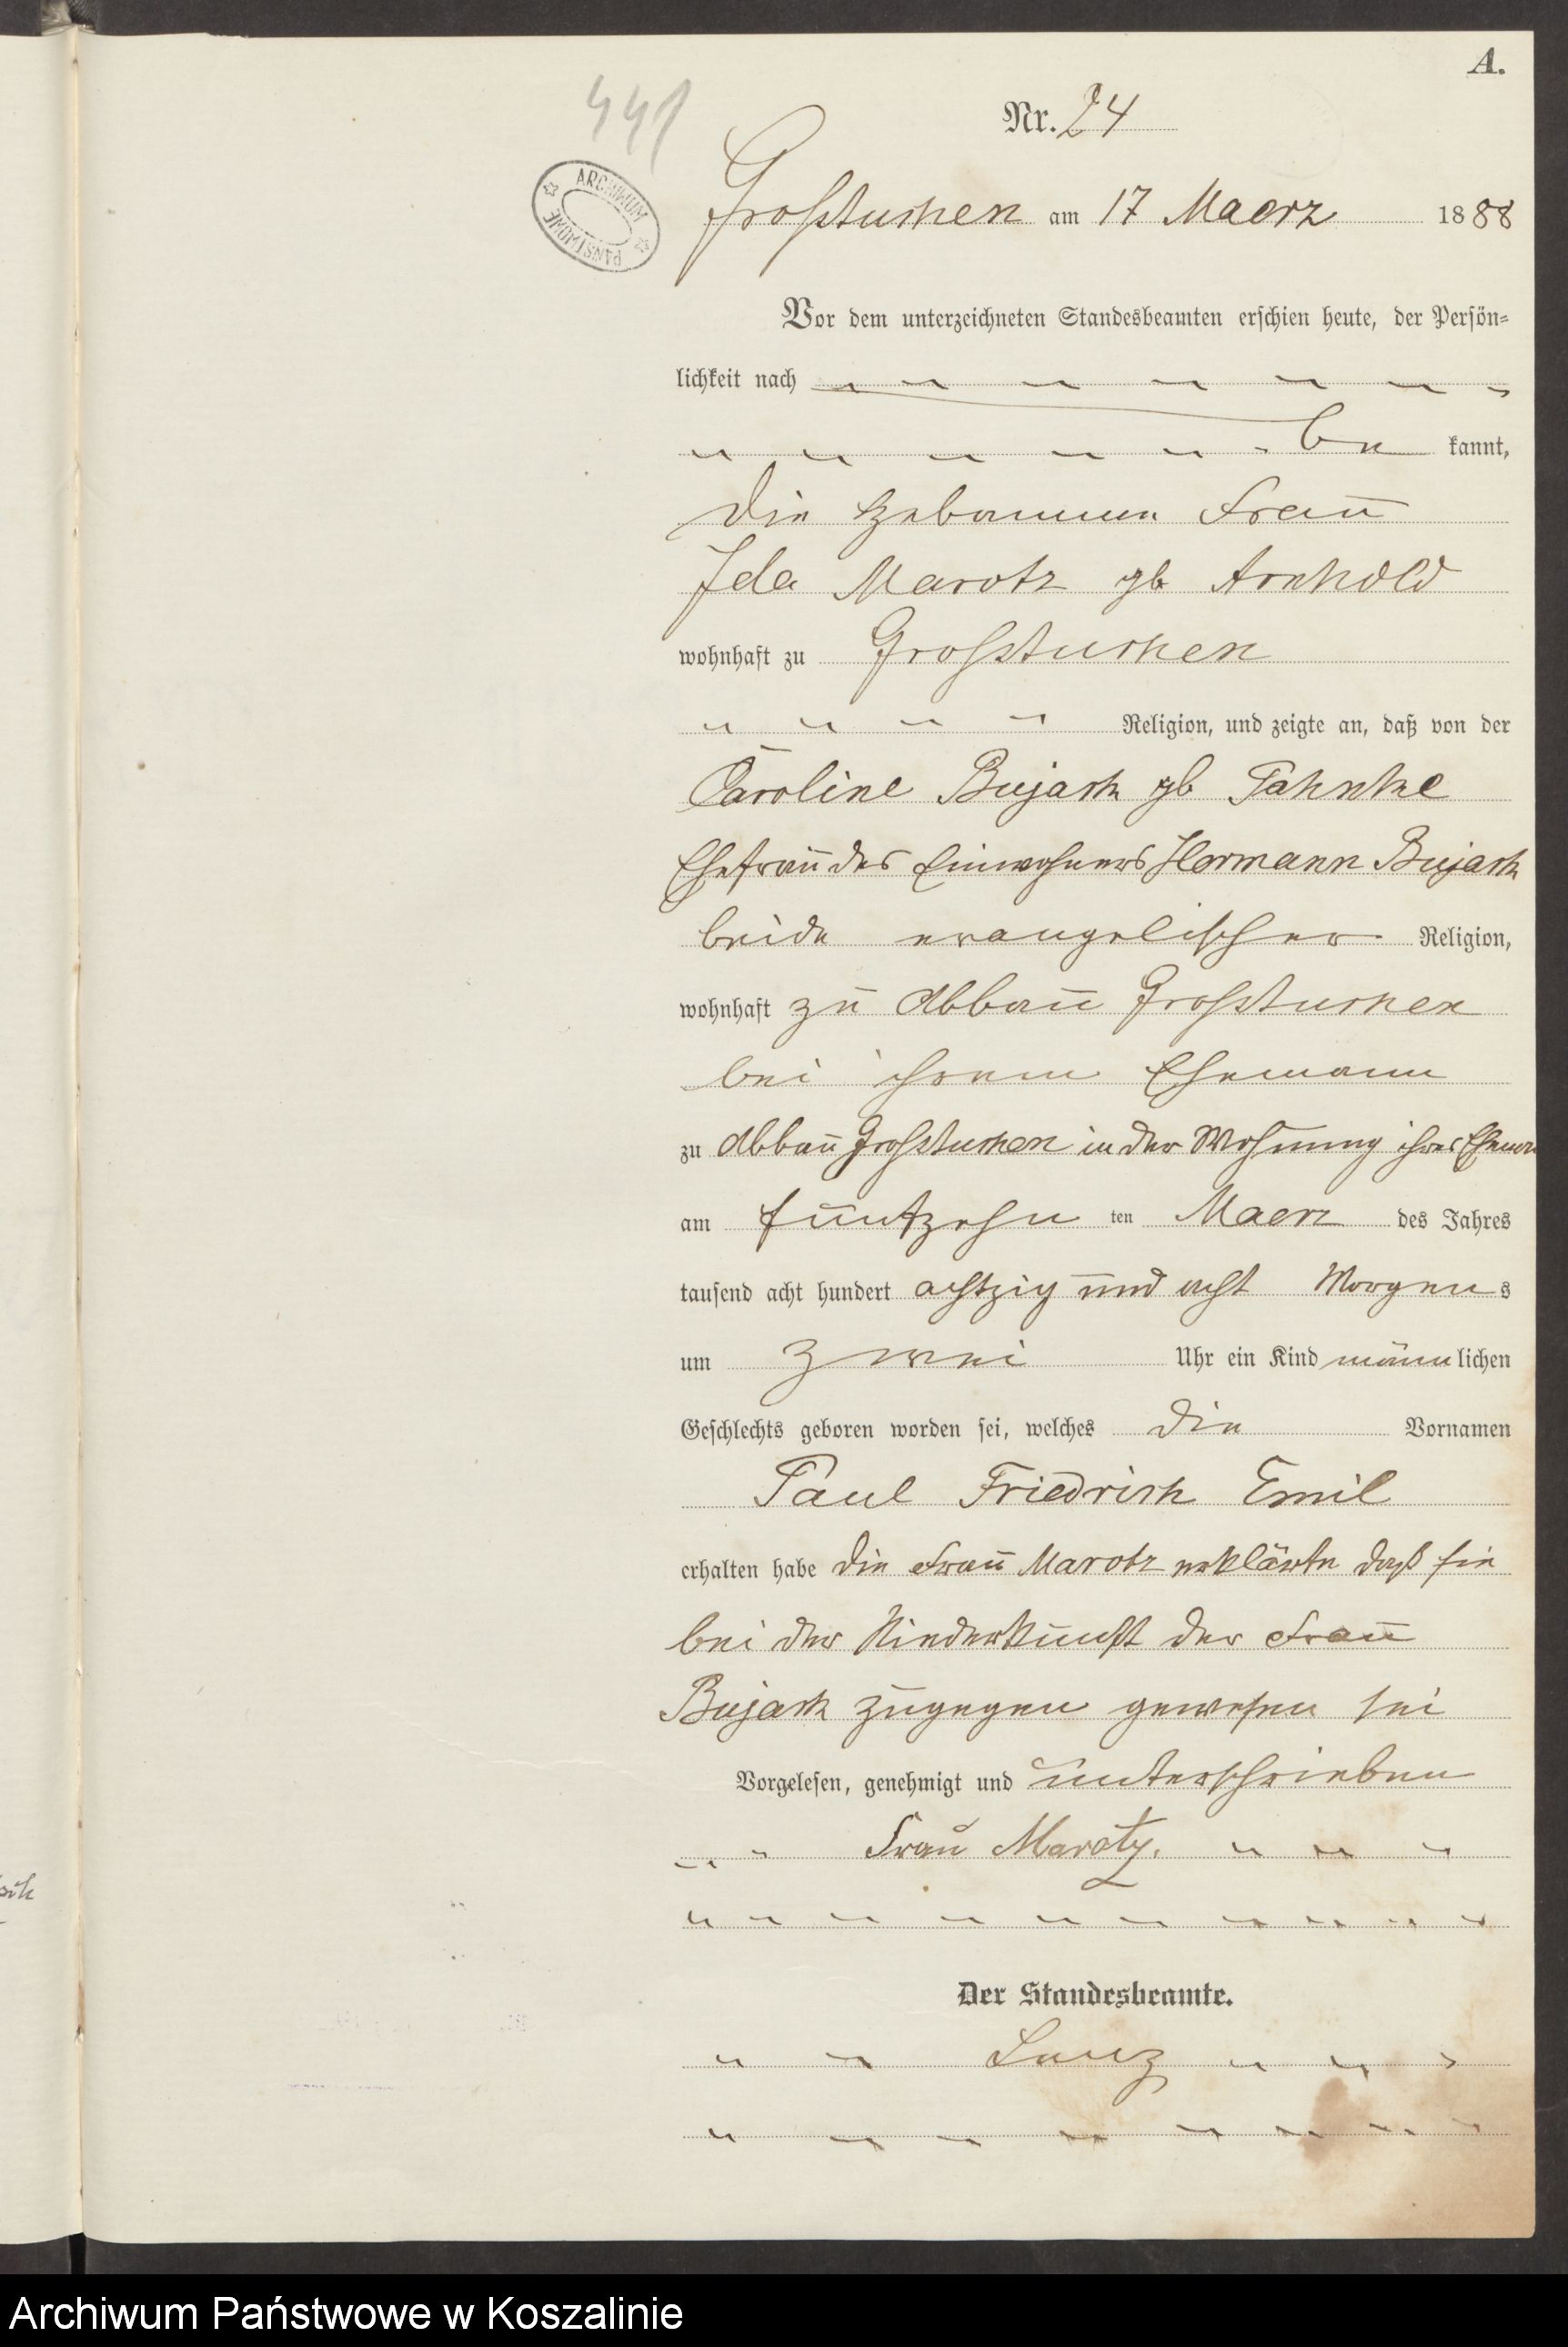 A.
441
Nr. 24
ARCHIWUM PAŃSTWOWE
Großtuchen am 17 Maerz 1888
Vor dem unterzeichneten Standesbeamten erschien heute, der Persön-
lichkeit nach
be kannt,
die Hebamme Frau
Ida Marotz gb Arnhold
wohnhaft zu Großtuchen
Religion, und zeigte an, daß von der
Caroline Bujack gb Pahnke
Ehefrau des Einwohners Hermann Bujack
beide evangelischer Religion,
wohnhaft zu Abbau Großtuchen
bei ihrem Ehemann
zu Abbau Großtuchen in der Wohnung ihres
am fünfzehn ten Maerz des Jahres
tausend acht hundert achtzig und acht Morgens
um zwei Uhr ein Kind männlichen
Geschlechts geboren worden sei, welches die Vornamen
Paul Friedrich Emil
erhalten habe die Frau Marotz erklärte daß sie
bei der Niederkunft der Frau
Bujack zugegen gewesen sei
Vorgelesen, genehmigt und unterschrieben
Frau Marotz.
Der Standesbeamte.
Archiwum Państwowe w Koszalinie